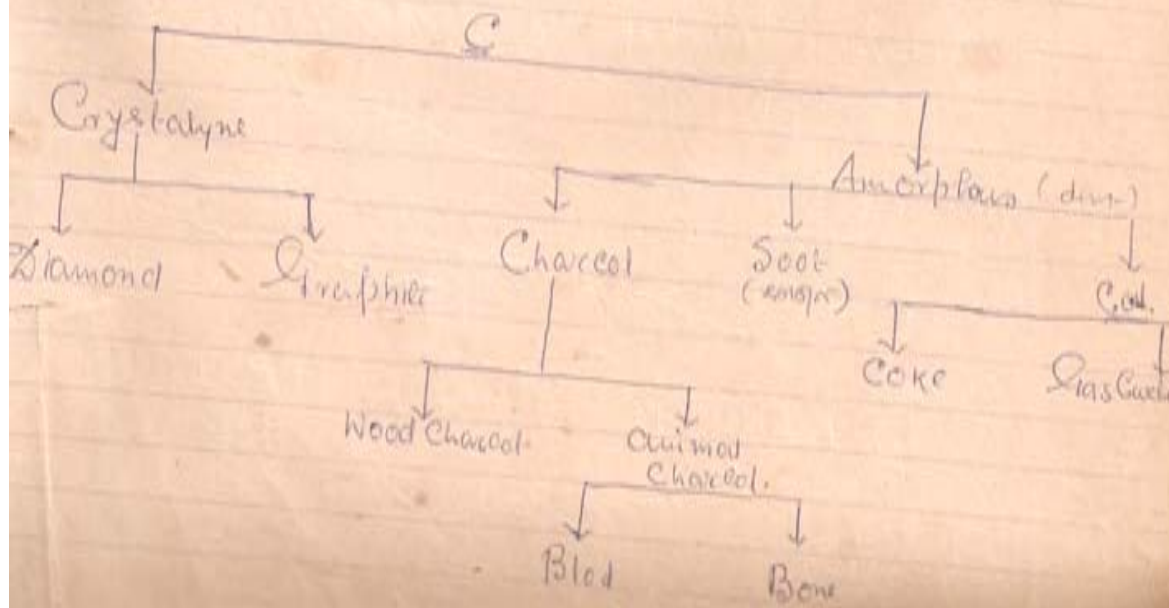 C
Crystalyne
Amorphous
Diamond
Graphite
Charcol
Soot
Coal.
Coke
Wood Charcol.
animal
Charcol.
Blod
Bone